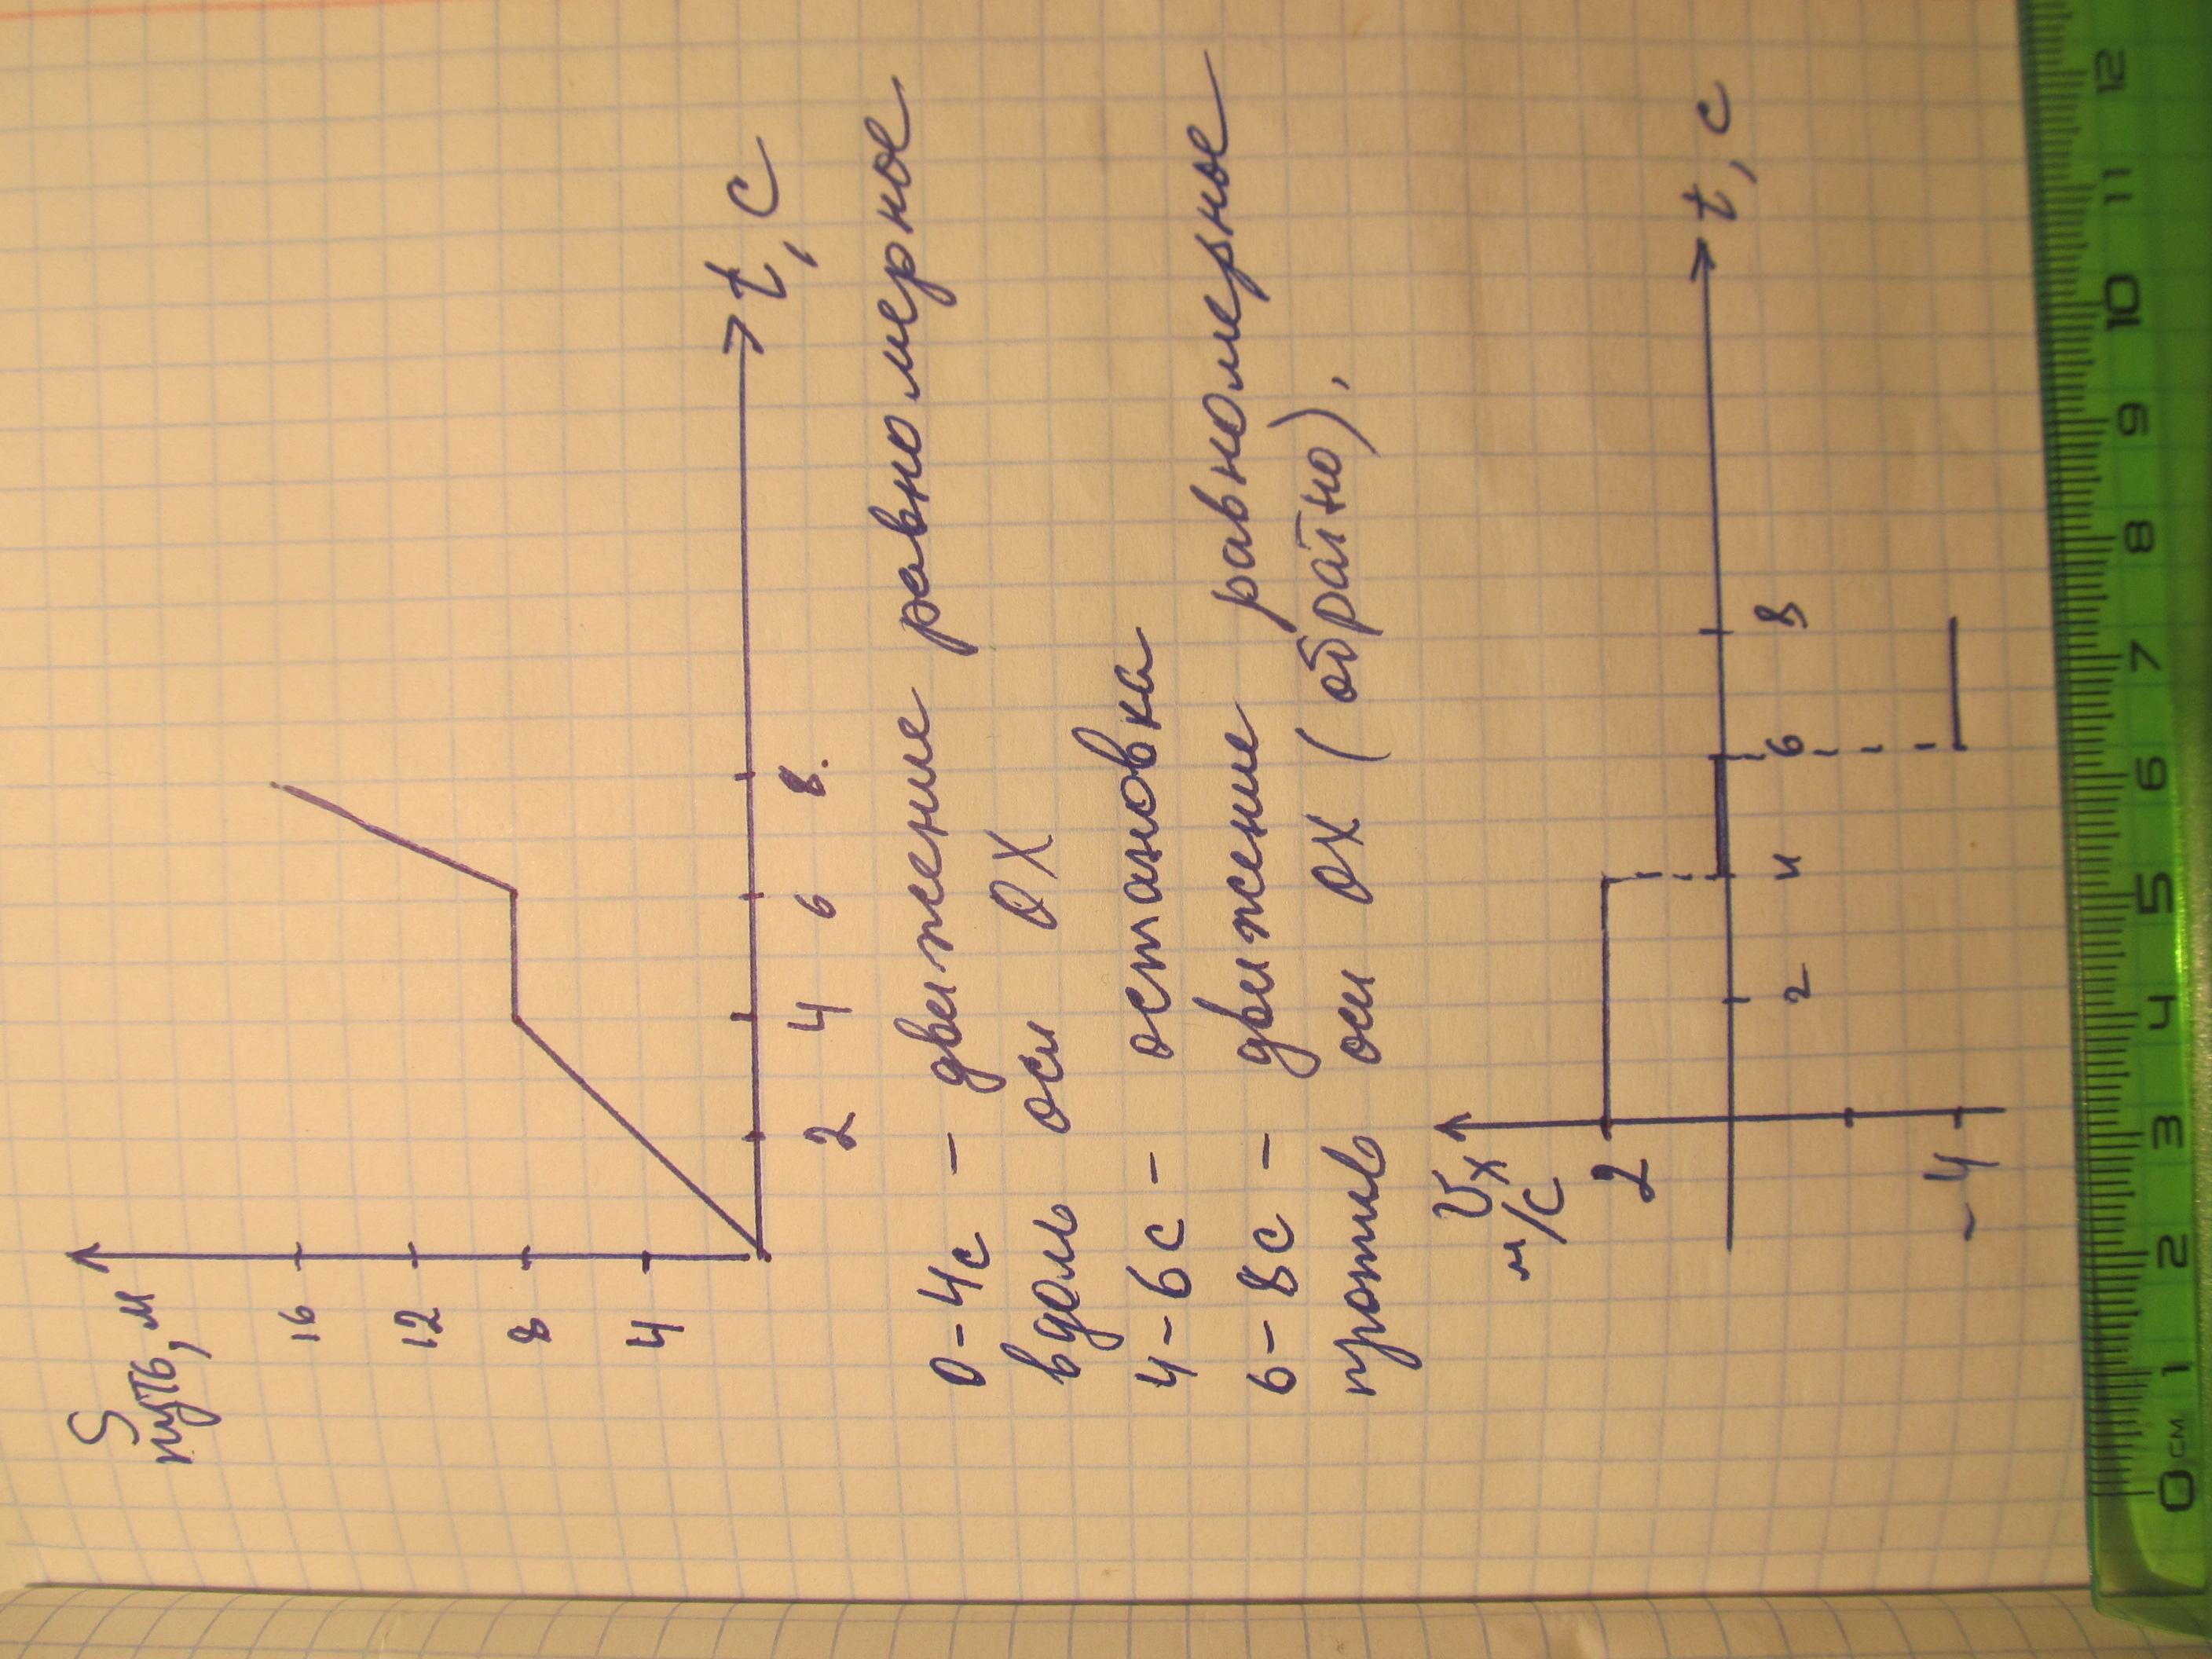 S
путь, м
16
12
8
4
2 4 6 8.
t, с
0-4с - движение равномерное
вдоль оси ОХ
4-6с - остановка
6-8с - движение равномерное
против оси ОХ (обратно).
Vx
м/с
2
2 4 6 8
t, с
-4
0 см 1 2 3 4 5 6 7 8 9 10 11 12